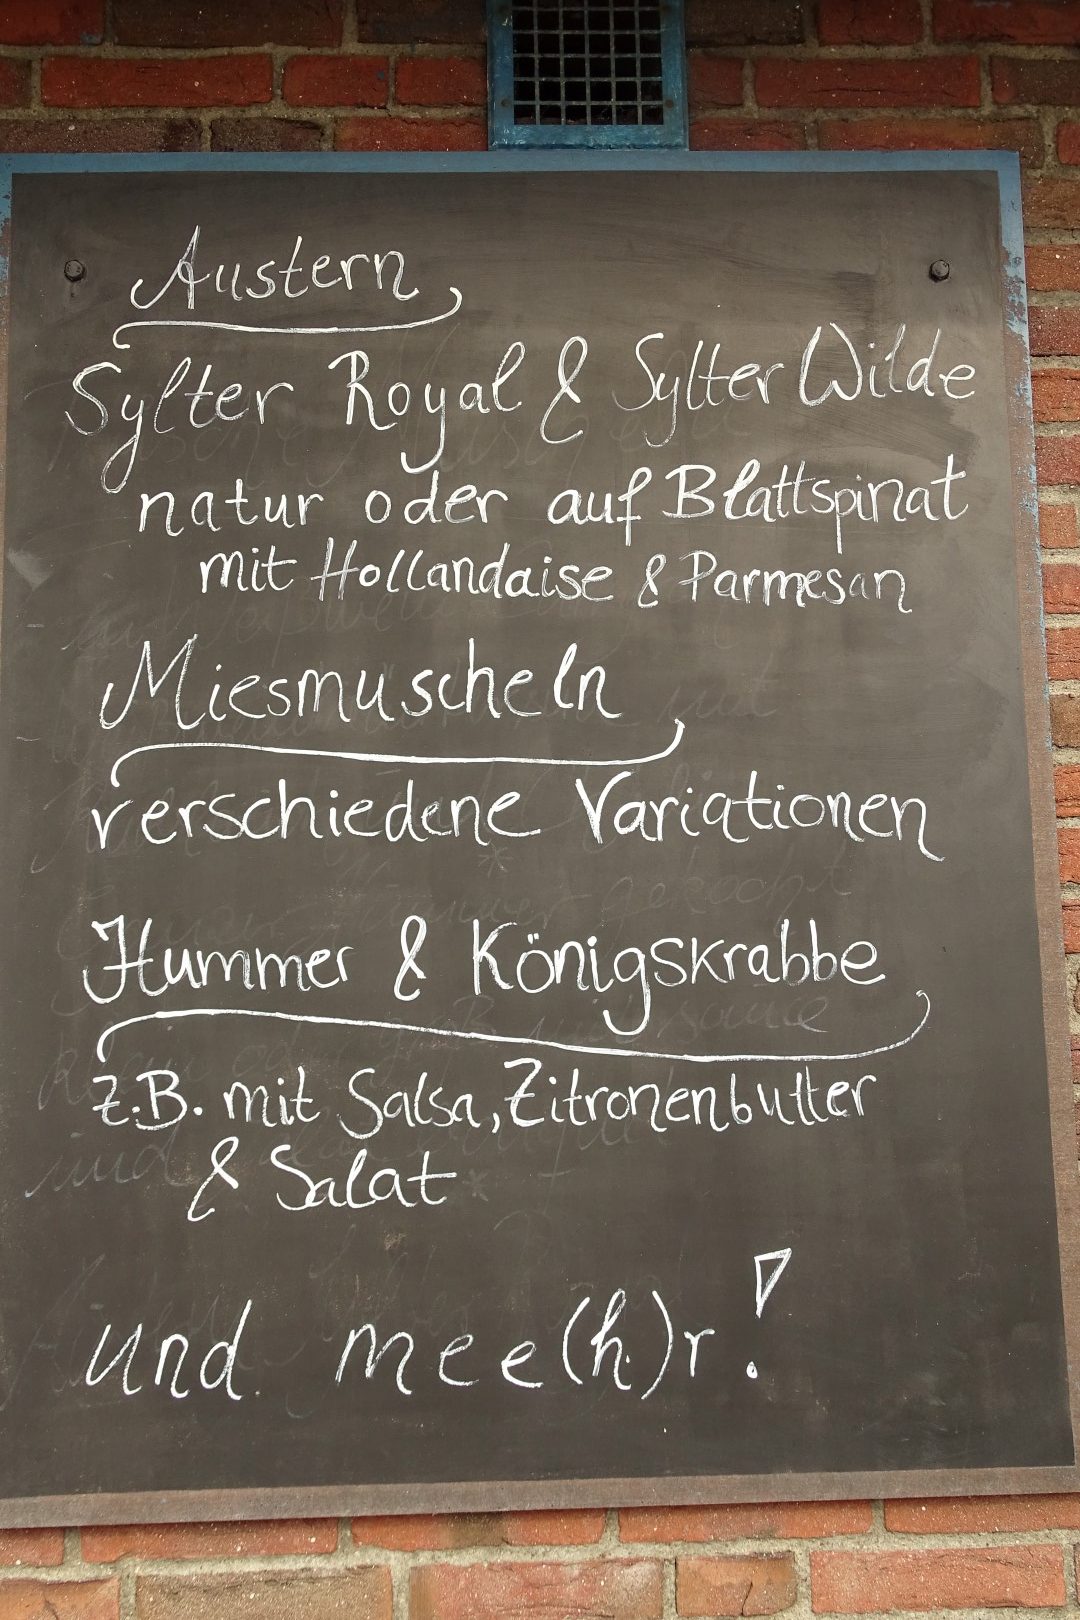 Austern
Sylter Royal & Sylter Wilde
natur oder auf Blattspinat
mit Hollandaise & Parmesan
Miesmuscheln
verschiedene Variationen
Hummer & Königskrabbe
z.B. mit Salsa, Zitronenbutter
& Salat
und mee(h)r!